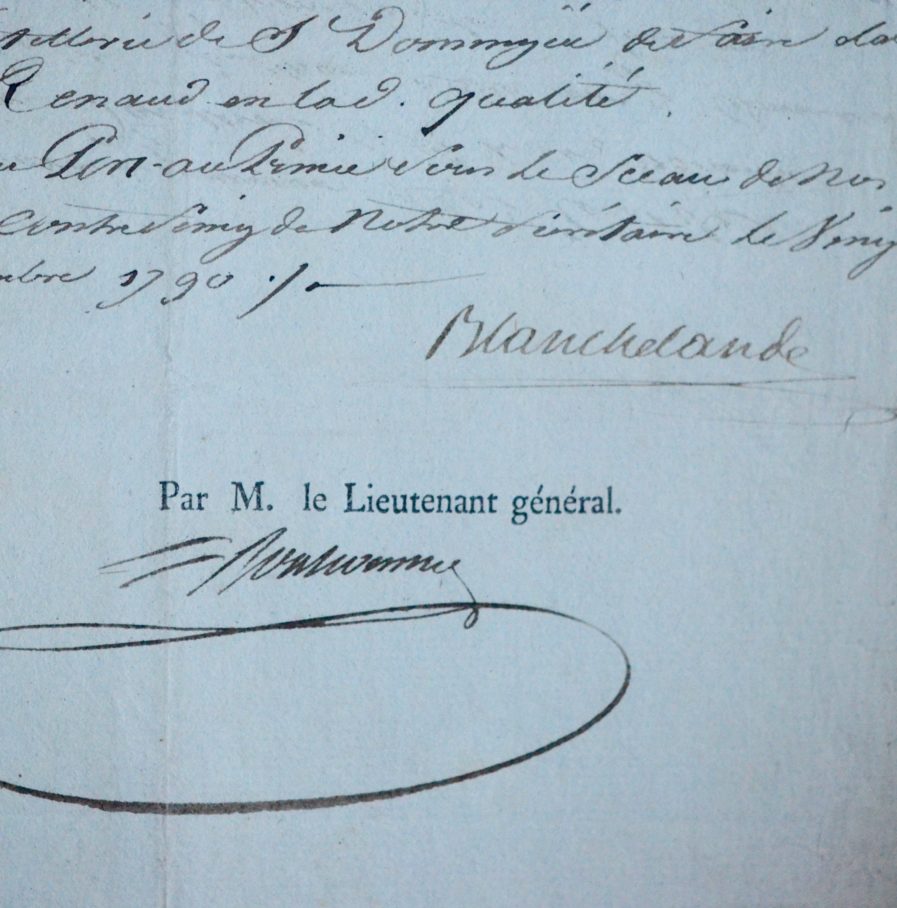 tillerie de St Domingüe de faire
Renaud en lad. qualité.
au Port-au Prince sous le Sceau de Nos
contre Seing de Notre Sécrétaire le Vingt
mbre 1790 ./.
Blanchelande
Par M. le Lieutenant général.